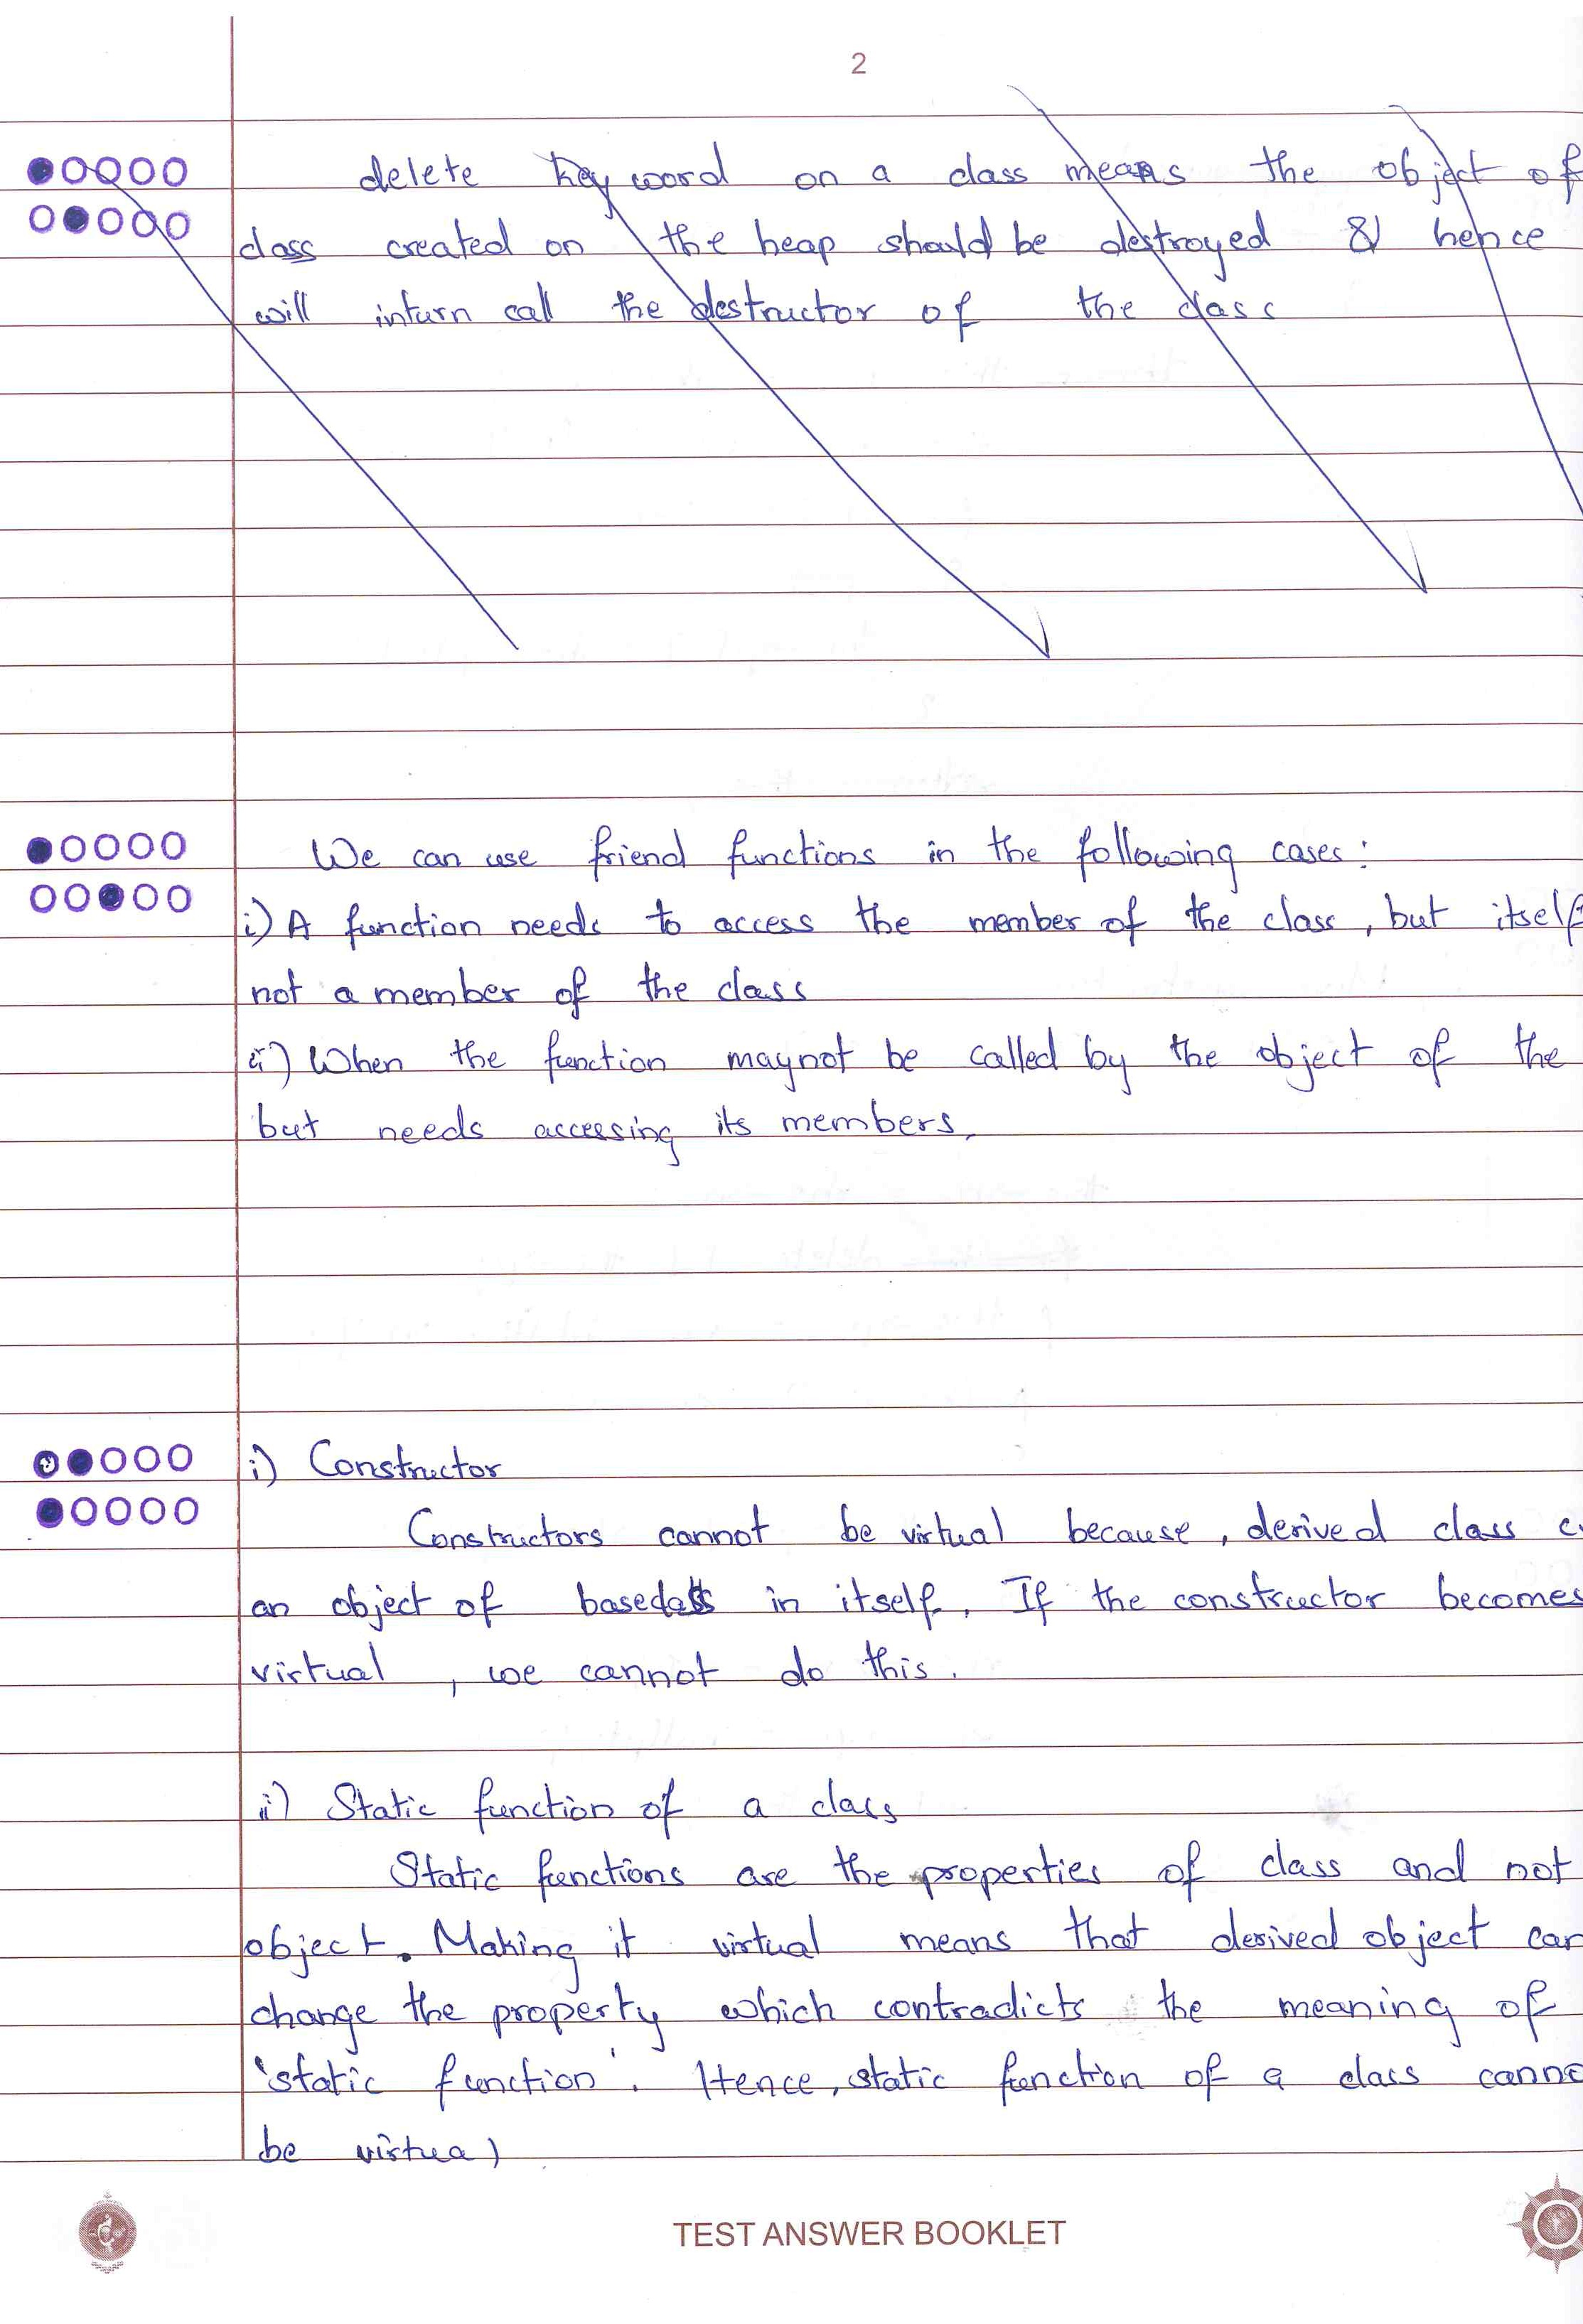 2
delete keyword on a class means the object of
class created on the heap should be destroyed & hence
will inturn call the destructor of the class
We can use friend functions in the following cases:
i) A function needs to access the member of the class, but itself
not a member of the class
ii) When the function maynot be called by the object of the
but needs accessing its members.
i) Constructor
Constructors cannot be virtual because, derived class
an object of baseclass in itself. If the constructor becomes
virtual, we cannot do this.
ii) Static function of a class
Static functions are the properties of class and not
object. Making it virtual means that derived object can
change the property which contradicts the meaning of
'static function'. Hence, static function of a class
be virtual
TEST ANSWER BOOKLET